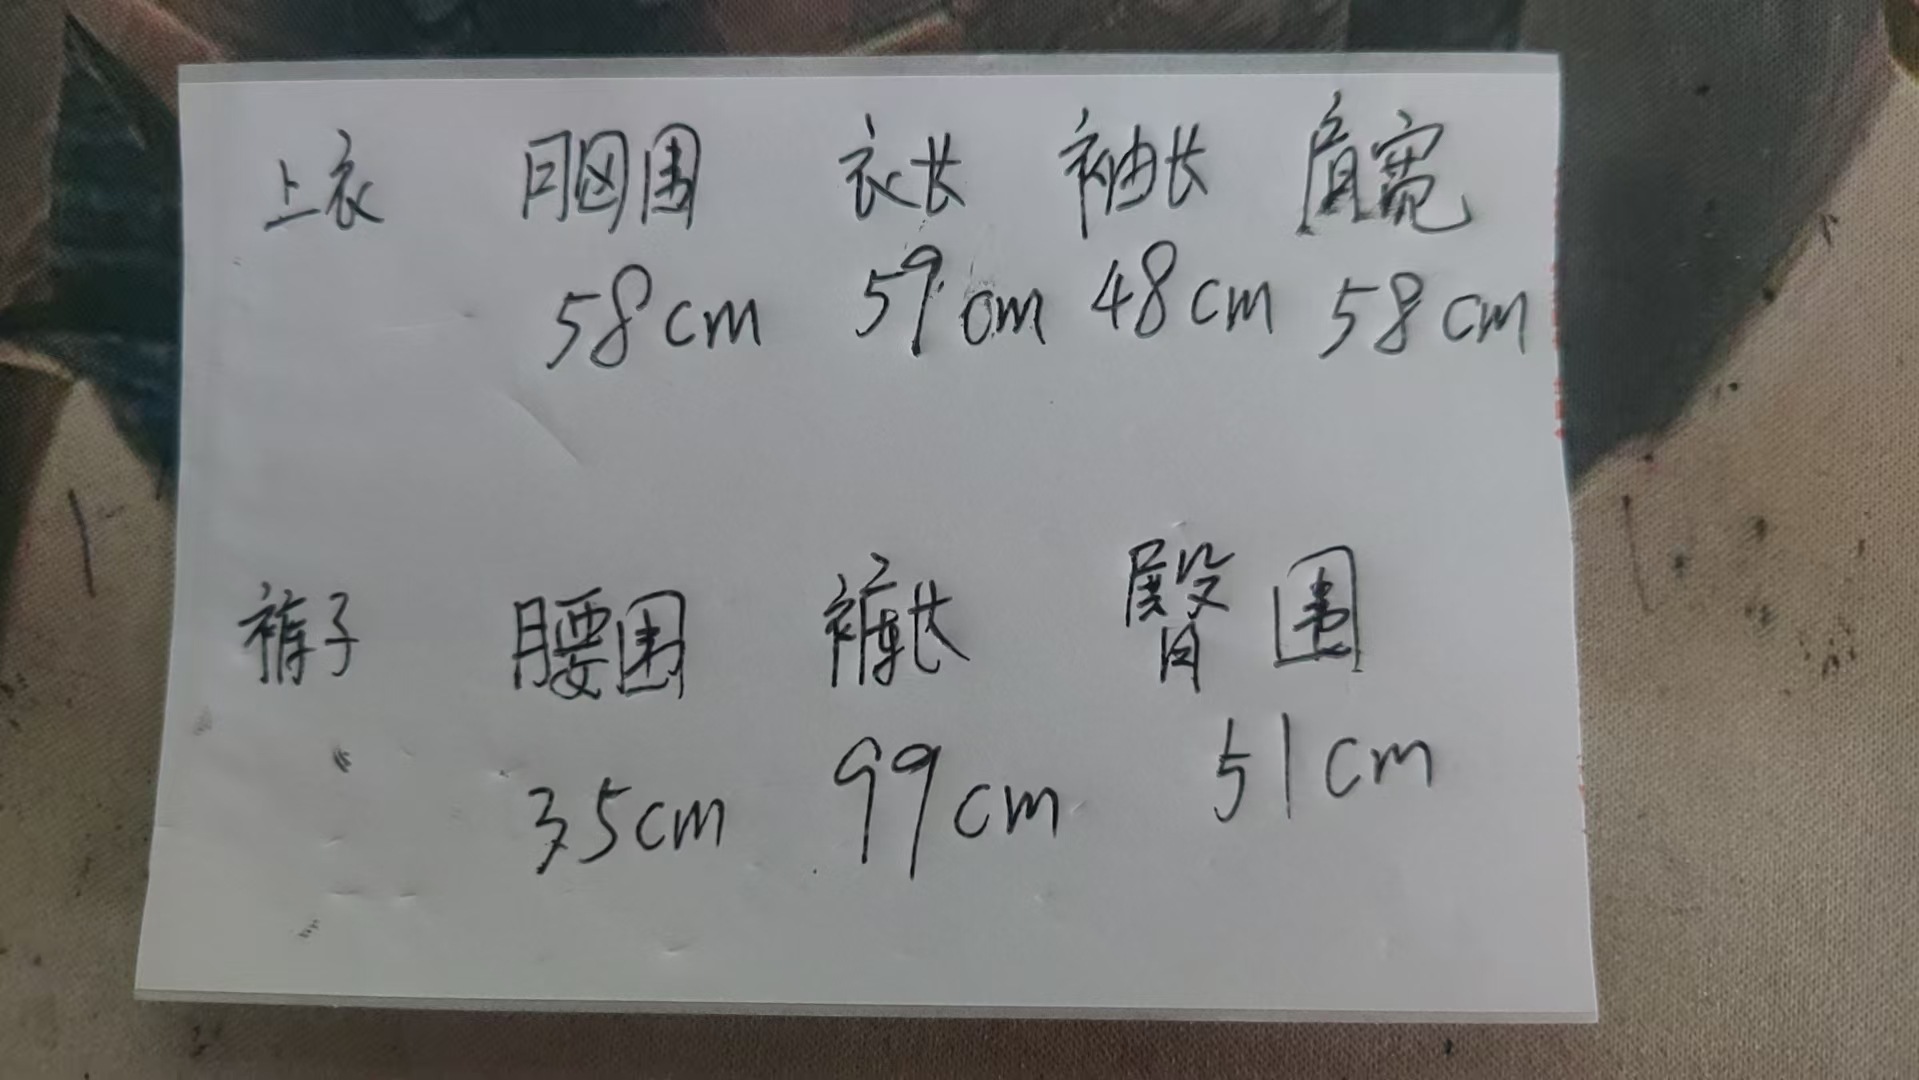 上衣 胸围 衣长 袖长 肩宽
58cm 59cm 48cm 58cm
裤子 腰围 裤长 臀围
35cm 99cm 51cm